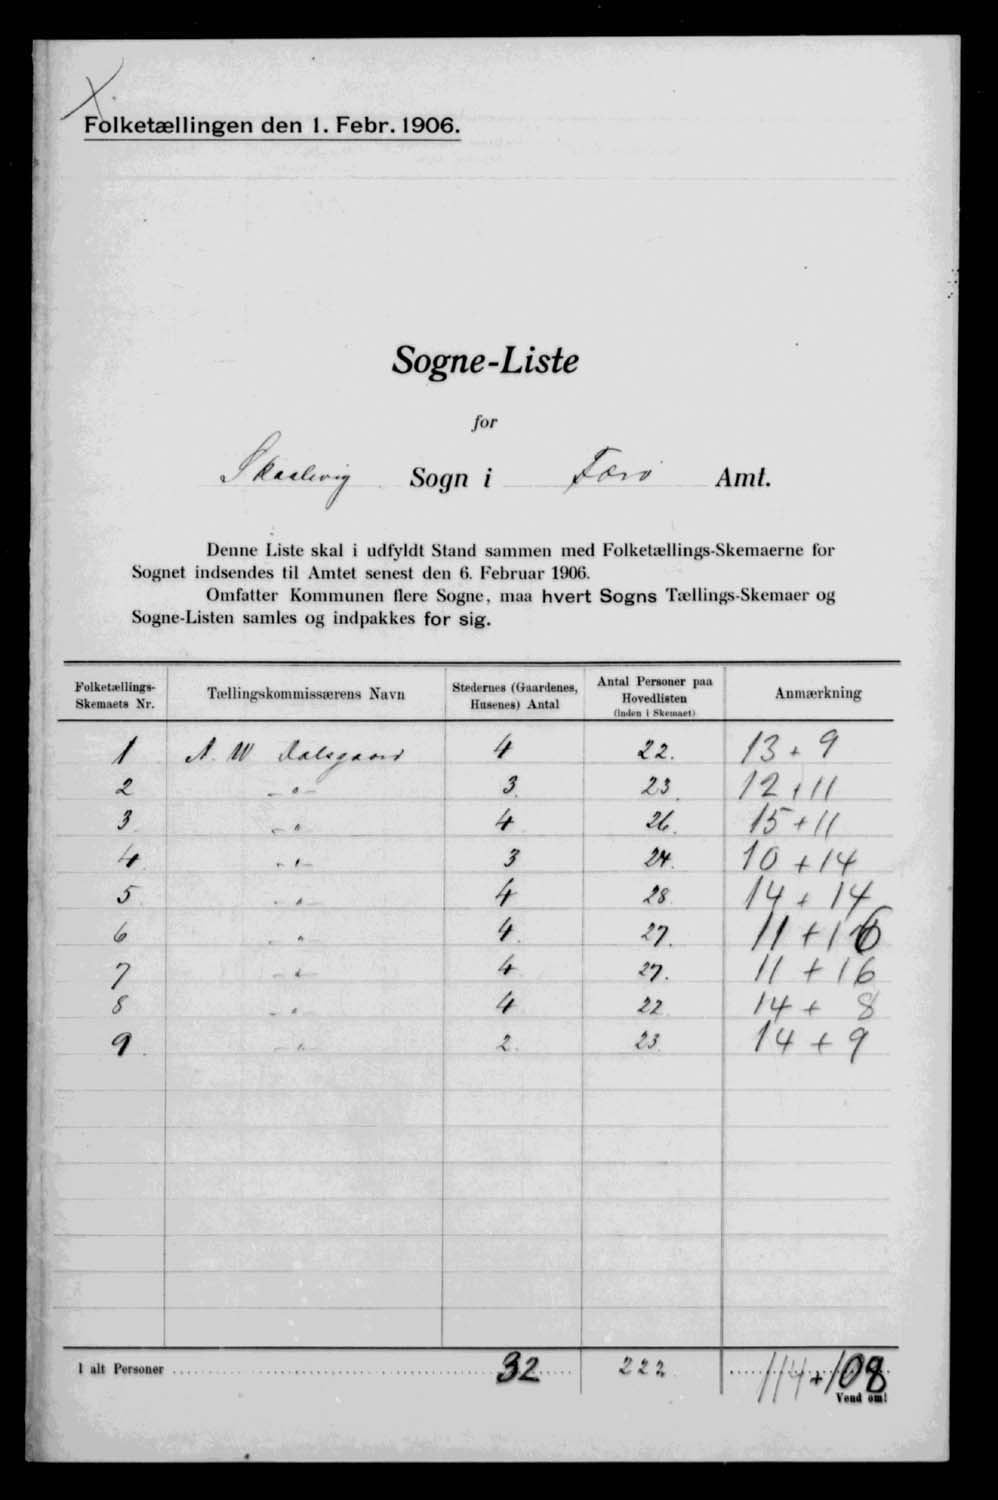 Folketællingen den 1. Febr. 1906.
Sogne-Liste
for
Skaalevig Sogn i Færø Amt.
Denne Liste skal i udfyldt Stand sammen med Folketællings-Skemaerne for
Sognet indsendes til Amtet senest den 6. Februar 1906.
Omfatter Kommunen flere Sogne, maa hvert Sogns Tællings-Skemaer og
Sogne-Listen samles og indpakkes for sig.
Folketællings-Skemaets Nr. Tællingskommissærens Navn Stedernes (Gaardenes, Husenes) Antal Antal Personer paa Hovedlisten (inden i Skemaet) Anmærkning
1 A. W. Dalsgaard 4 22. 13 + 9
2 - " - 3. 23. 12 + 11
3 - " 4 26. 15 + 11
4 - " - 3 24. 10 + 14
5 - " - 4 28 14 + 14
6 - " 4. 27. 11 + 16
7 - " - 4 27. 11 + 16
8 - " 4 22 14 + 8
9. - " - 2. 23. 14 + 9
I alt Personer 32 222 114 + 108
Vend om!